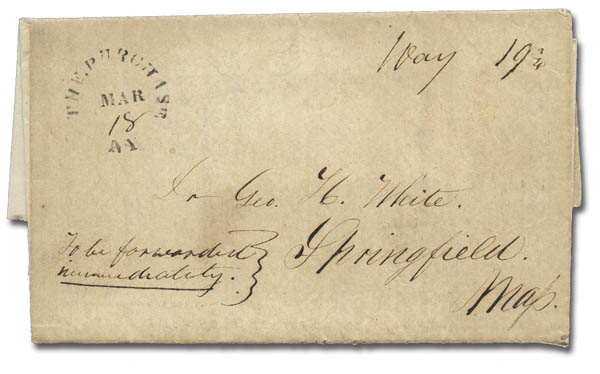 THE PURCHASE
MAR
18
NY
Way 19 ¾
Dr Geo. H. White.
Springfield.
Mass.
To be forwarded
immediately.